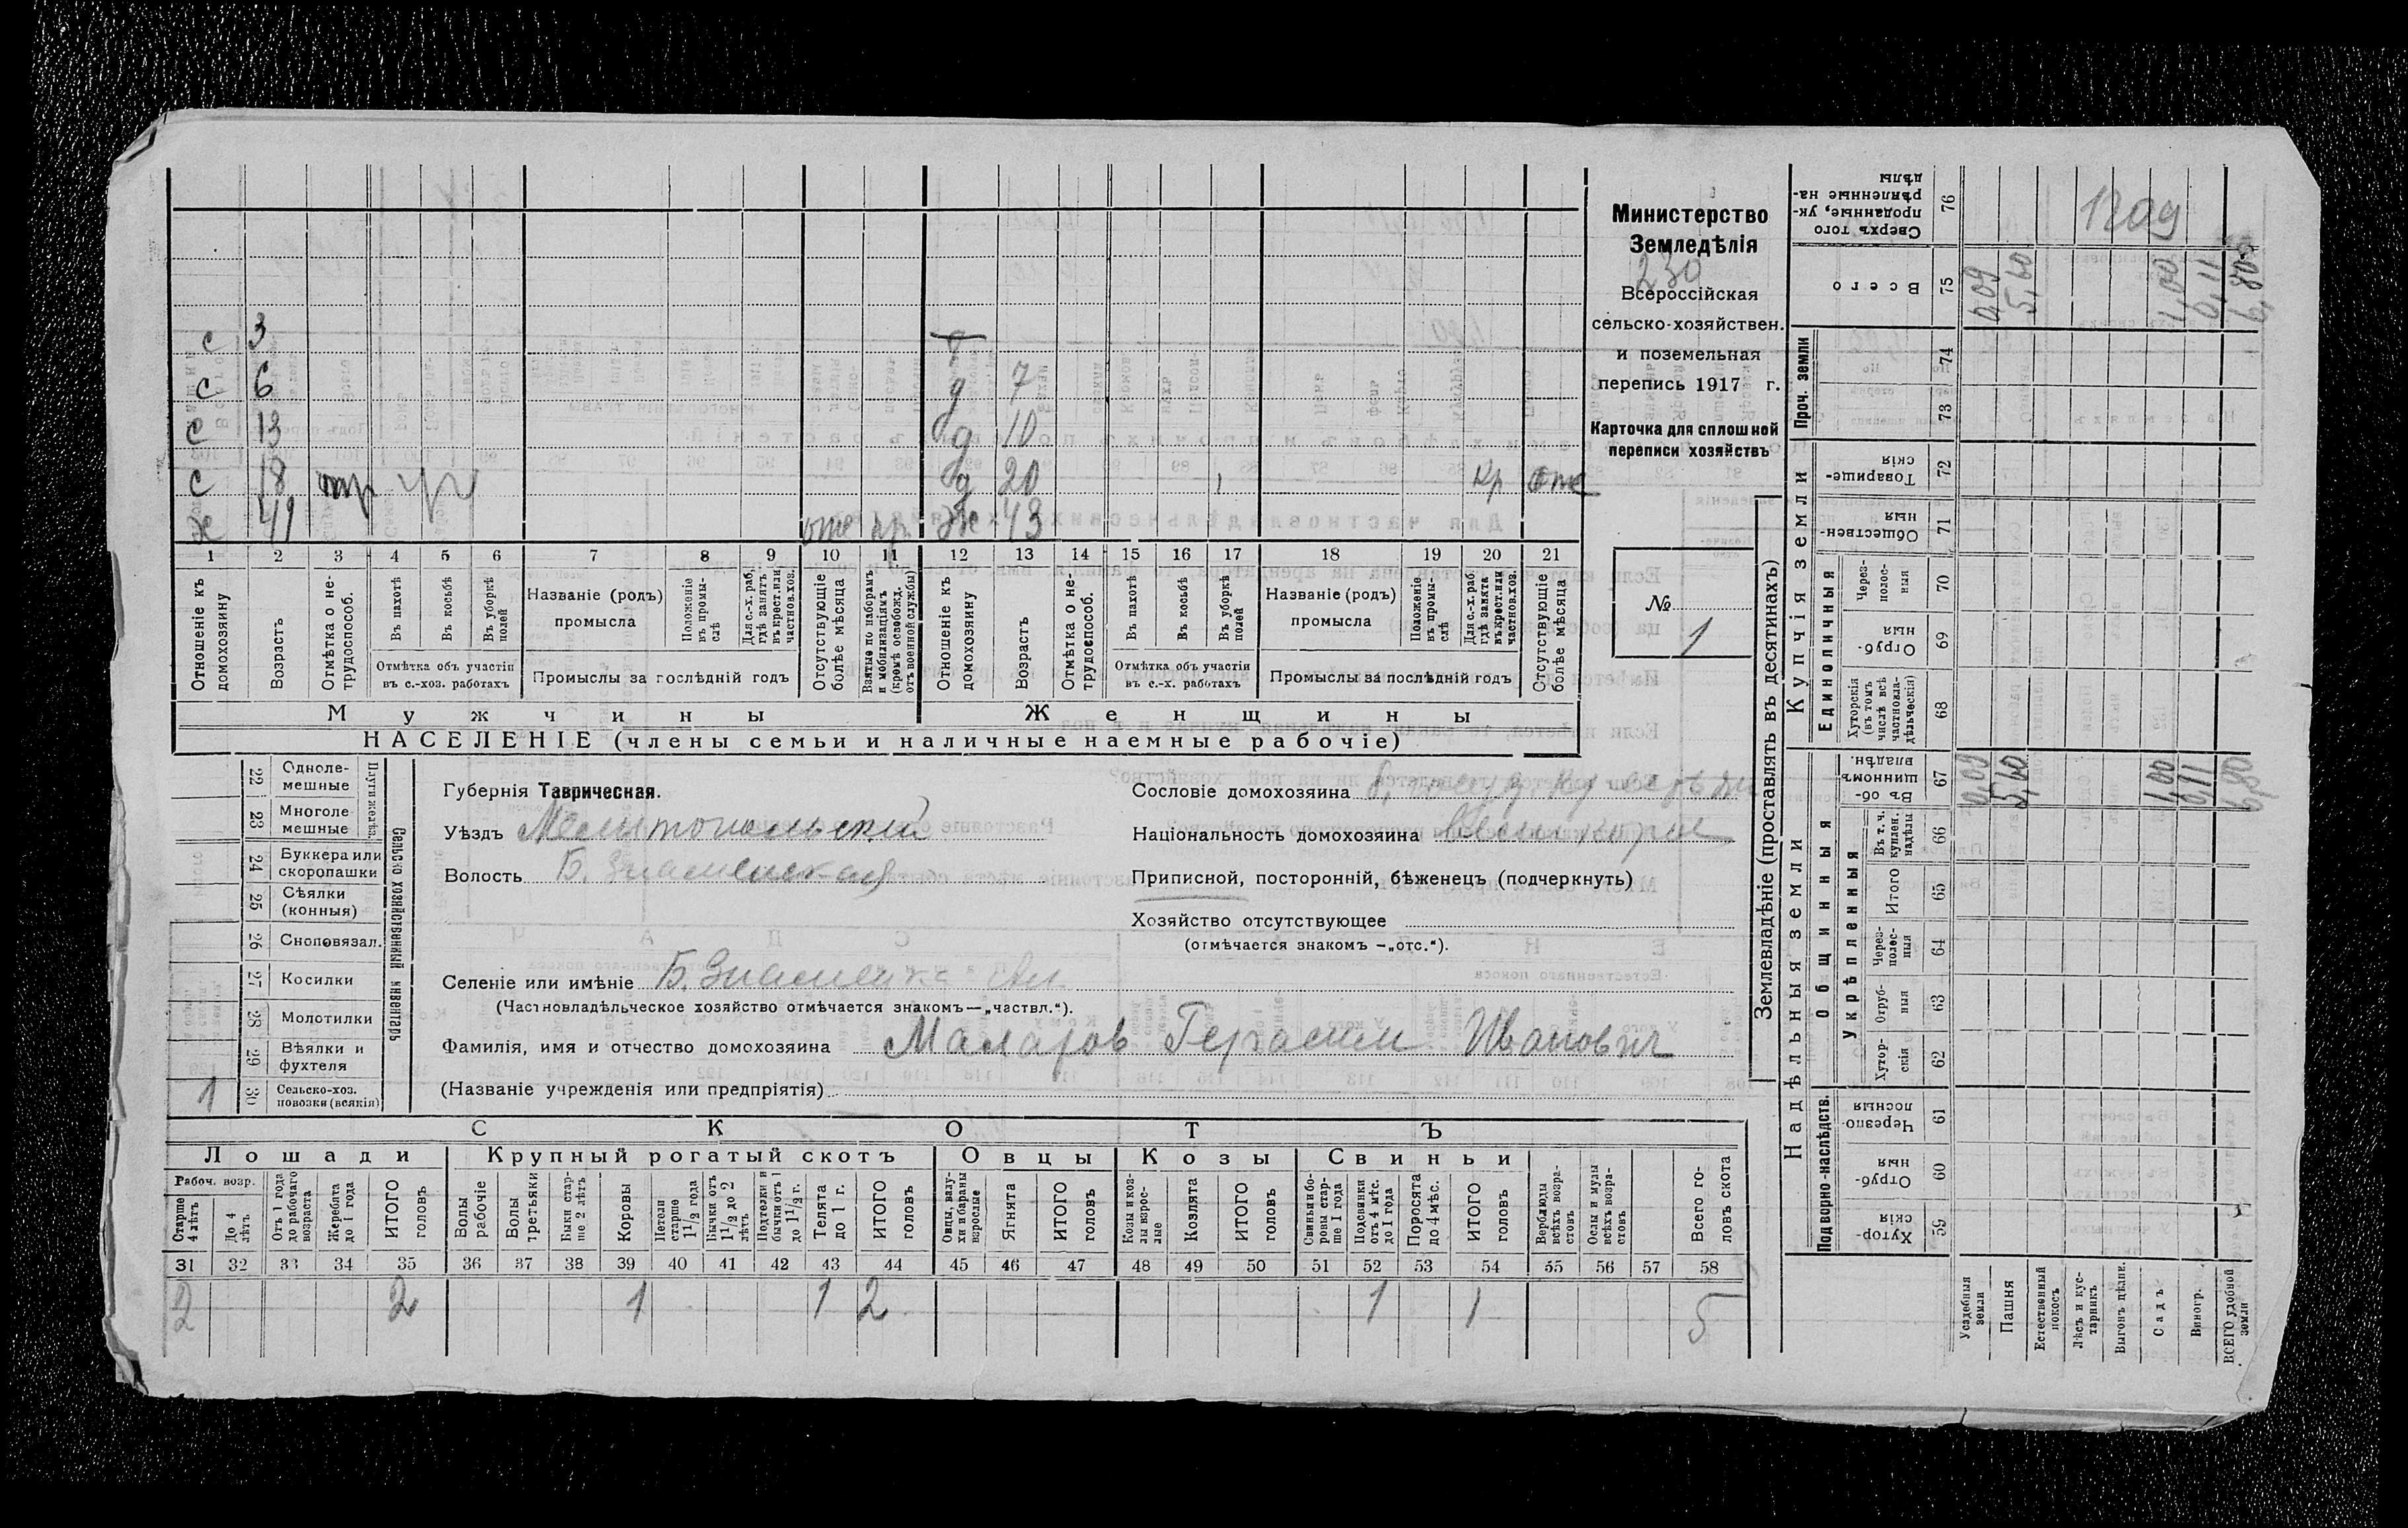 с 3
с 6 д 7
с 13 д 10
с 18 д 20 кр отс
х 41 отс пр. ж 43
1 2 3 4 5 6 7 8 9 10 11 12 13 14 15 16 17 18 19 20 21
Отношеніе къ домохозяину
Возрастъ
Отмѣтка о не-трудоспособ.
Въ пахотѣ
Въ косьбѣ
Въ уборкѣ полей
Отмѣтка объ участіи въ с.-хоз. работахъ
Названіе (родъ) промысла
Положеніе въ промы-слѣ
Для с.-х. раб. гдѣ занятъ въ крест. или частнов. хоз.
Промыслы за послѣдній годъ
Отсутствующіе болѣе мѣсяца
Взятые по наборамъ и мобилизаціямъ (кромѣ освобожд. отъ военной службы)
Отношеніе къ домохозяину
Возрастъ
Отмѣтка о не-трудоспособ.
Въ пахотѣ
Въ косьбѣ
Въ уборкѣ полей
Отмѣтка объ участіи въ с.-х. работахъ
Названіе (родъ) промысла
Положеніе въ промы-слѣ
Для с.-х. раб. гдѣ занята въ крест. или частнов. хоз.
Промыслы за послѣдній годъ
Отсутствующіе болѣе мѣсяца
Мужчины Женщины
НАСЕЛЕНІЕ (члены семьи и наличные наемные рабочіе)
Министерство
Земледѣлія
230
Всероссійская
сельско-хозяйствен.
и поземельная
перепись 1917 г.
Карточка для сплошной
переписи хозяйствъ
№ 1
22 Одноле-мешные
23 Многоле-мешные
Плуги желѣз.
24 Буккера или скоропашки
25 Сѣялки (конныя)
26 Сноповязал.
27 Косилки
28 Молотилки
29 Вѣялки и фухтеля
1 30 Сельско-хоз. повозки (всякія)
Сельско хозяйственный инвентарь
Губернія Таврическая.
Уѣздъ Мелитопольский
Волость Б. Знаменская
Селеніе или имѣніе Б. Знаменка
(Частновладѣльческое хозяйство отмѣчается знакомъ—„частвл.“).
Фамилія, имя и отчество домохозяина Маляров Герасим Иванович
(Названіе учрежденія или предпріятія)
Сословіе домохозяина
Національность домохозяина
Приписной, посторонній, бѣженецъ (подчеркнуть)
Хозяйство отсутствующее
(отмѣчается знакомъ —„отс.“).
СКОТЪ
Лошади Крупный рогатый скотъ Овцы Козы Свиньи
Рабоч. возр.
Старше 4 лѣтъ
До 4 лѣтъ
Отъ 1 года до рабочаго возраста
Жеребята до 1 года
ИТОГО головъ
Волы рабочіе
Волы третьяки
Быки стар-ше 2 лѣтъ
Коровы
Нетели старше 1 1/2 года
Бычки отъ 1 1/2 до 2 лѣтъ
Подтелки и бычки отъ 1 до 1 1/2 г.
Телята до 1 г.
ИТОГО головъ
Овцы, валу-хи и бараны взрослые
Ягнята
ИТОГО головъ
Козы и коз-лы взрос-лые
Козлята
ИТОГО головъ
Свиньи и бо-ровы стар-ше 1 года
Подсвинки отъ 4 мѣс. до 1 года
Поросята до 4 мѣс.
ИТОГО головъ
Верблюды всѣхъ возра-стовъ
Ослы и мулы всѣхъ возра-стовъ
Всего го-ловъ скота
31 32 33 34 35 36 37 38 39 40 41 42 43 44 45 46 47 48 49 50 51 52 53 54 55 56 57 58
2 2 1 1 2 1 1 5
Землевладѣніе (проставлять въ десятинахъ)
Сверхъ того проданные, ук-рѣпленные на-дѣлы 76 1209
Всего 75 0,09 5,60 1,00 0,11 6,80
Проч. земли
74
73
Купчія земли
Товарище-скія 72
Обществен-ныя 71
Единоличныя
Через-полос-ныя 70
Отруб-ныя 69
Хуторскія (въ томъ числѣ всѣ частновла-дѣльческія) 68
Надѣльныя земли
Общинныя
Въ об-щинномъ владѣн. 67 0,09 5,60 1,00 0,11 6,80
Укрѣпленныя
Въ т. ч. куплен. надѣлы 66
Итого 65
Через-полос-ныя 64
Отруб-ныя 63
Хутор-скія 62
Подворно-наслѣдств.
Черезпо-лосныя 61
Отруб-ныя 60
Хутор-скія 59
Усадебныя земли
Пашня
Естественный покосъ
Лѣсъ и кус-тарникъ
Выгонъ цѣлин.
Садъ
Виногр.
ВСЕГО удобной земли